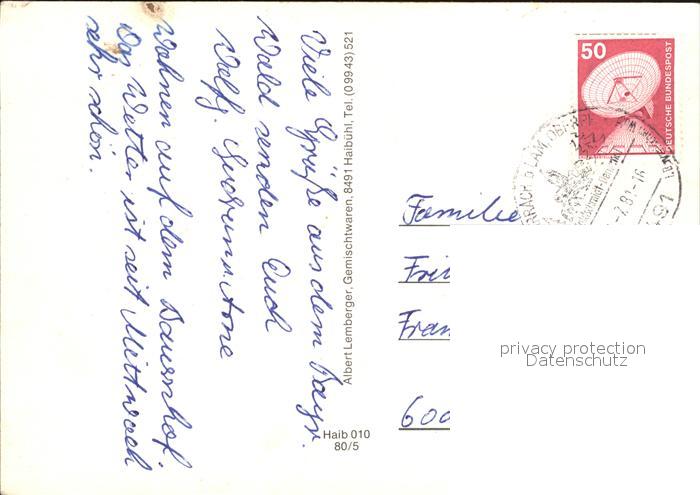 Viele Grüße aus dem Bayr.
Wald senden Euch
Wolfg. Gudrun u. Tone
Wohnen auf dem Bauernhof.
Das Wetter ist seit Mittwoch
sehr schön.
Albert Lemberger, Gemischtwaren, 8491 Haibühl, Tel. (09943) 521
Haib 010
80/5
50
DEUTSCHE BUNDESPOST
Familie
Fri
Fran
600
privacy protection
Datenschutz